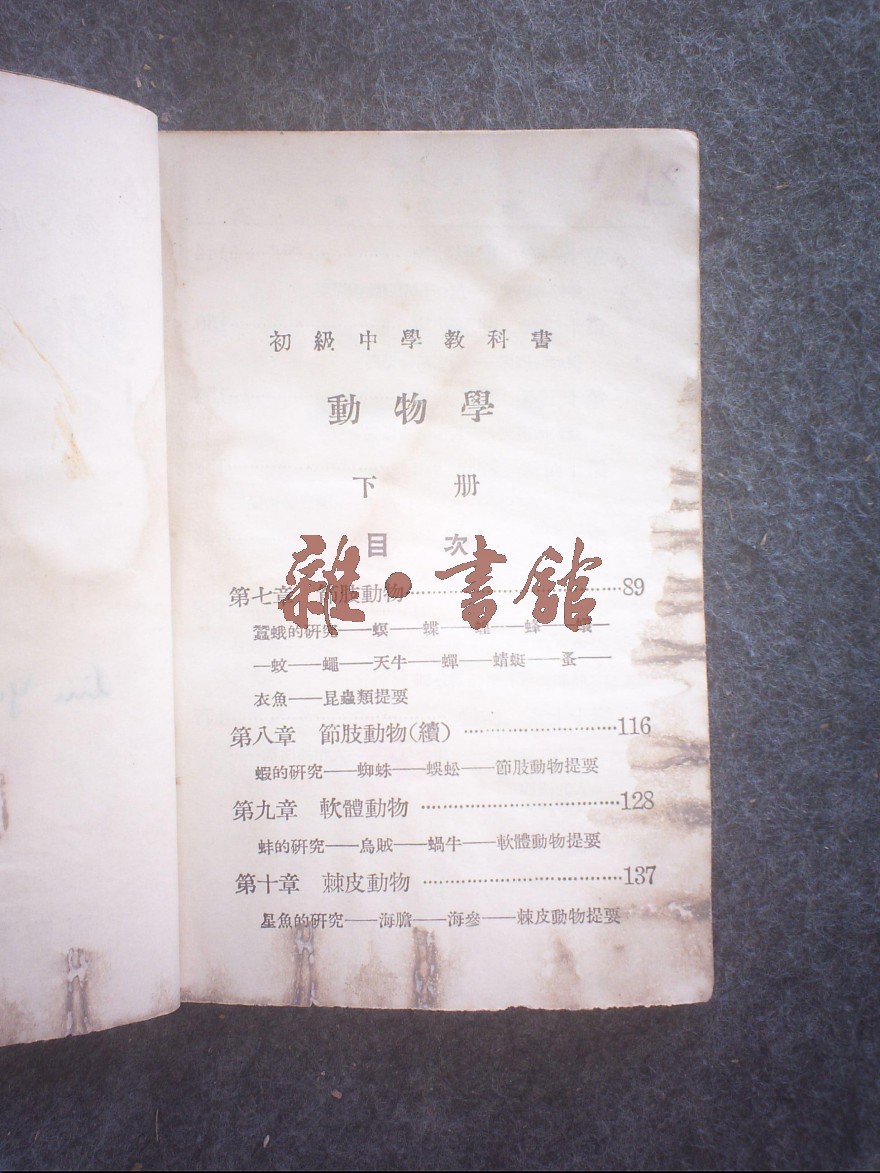 初級中學教科書
動物學
下册
目次
第七章 節肢動物 89
蠶蛾的研究——螟——蝶
—蚊——蠅——天牛——蟬——蜻蜓——蚤——
衣魚——昆蟲類提要
第八章 節肢動物(續) 116
蝦的研究——蜘蛛——蜈蚣——節肢動物提要
第九章 軟體動物 128
蚌的研究——烏賊——蝸牛——軟體動物提要
第十章 棘皮動物 137
星魚的研究——海膽——海參——棘皮動物提要
雜·書館